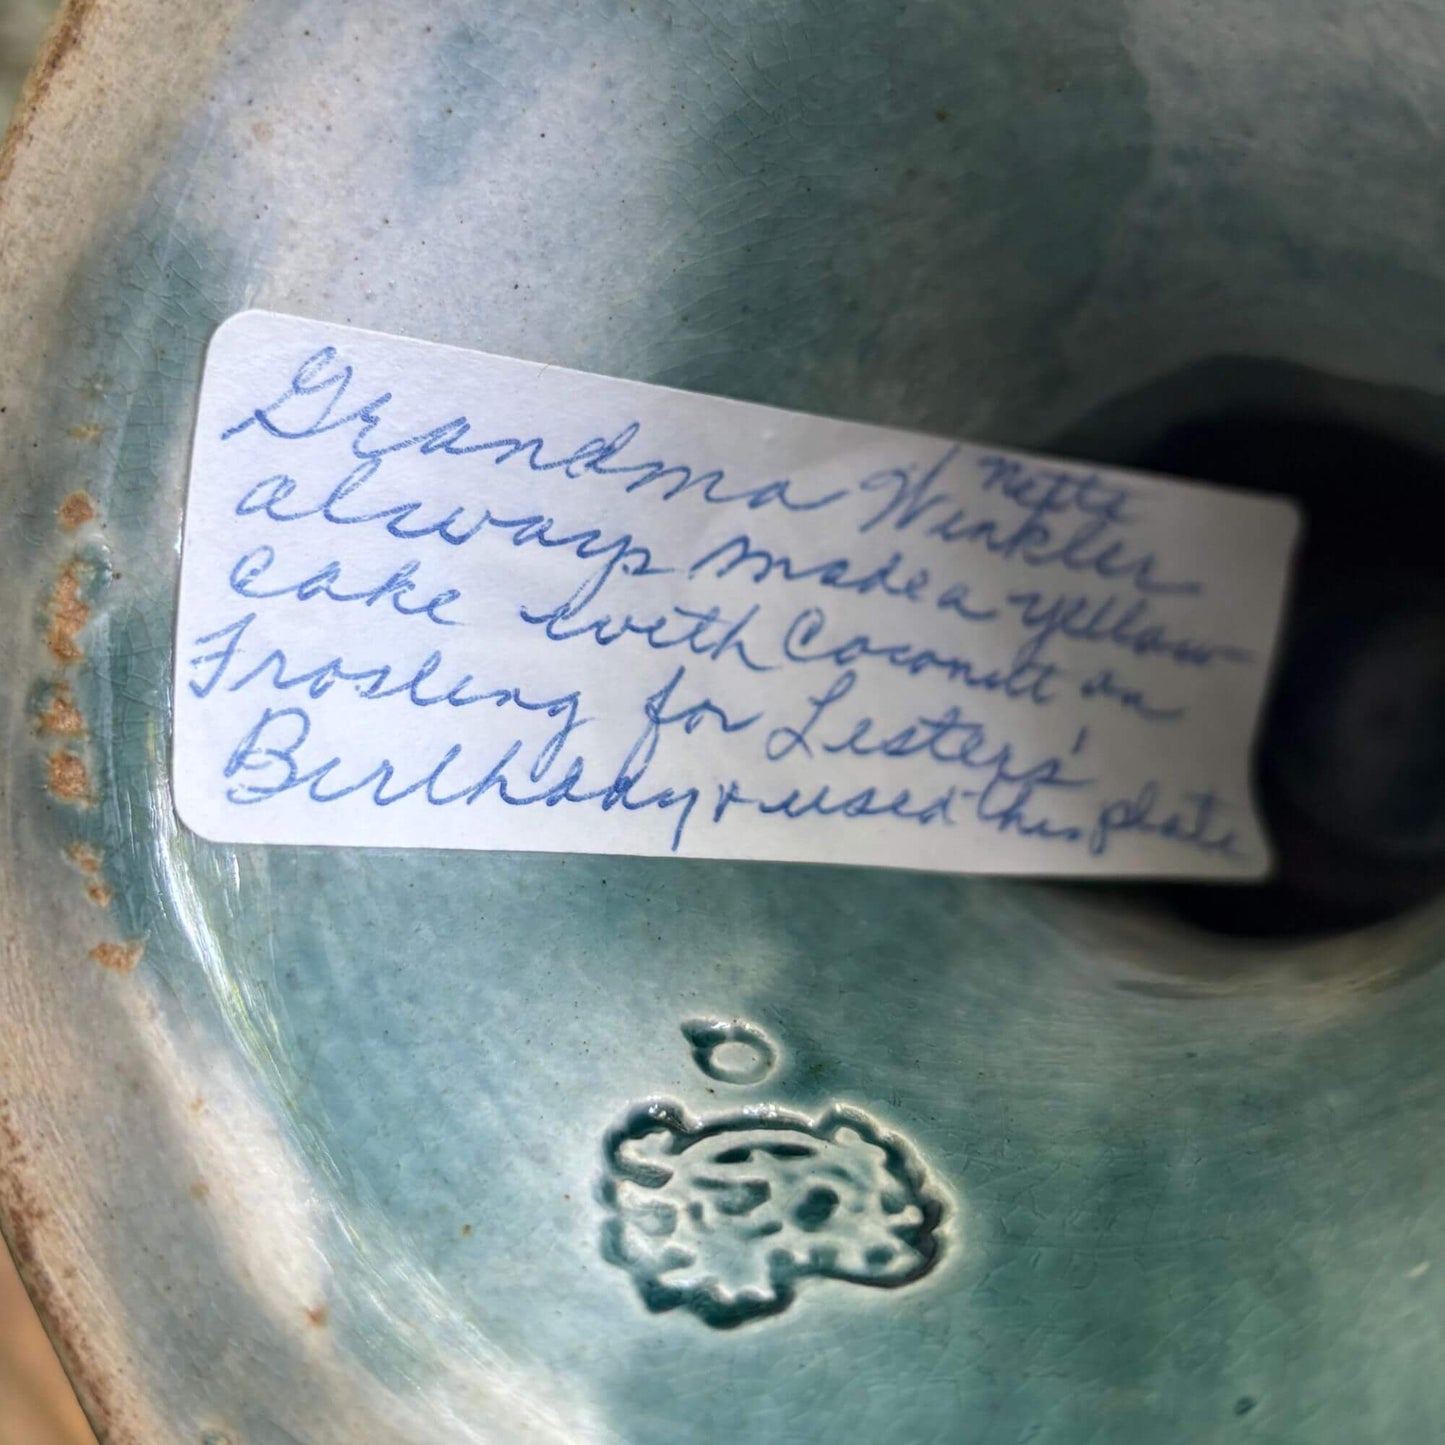 Nette
Grandma Winkler
always made a yellow
cake with Coconut on
Frosting for Lesters'
Birthday + used this plate